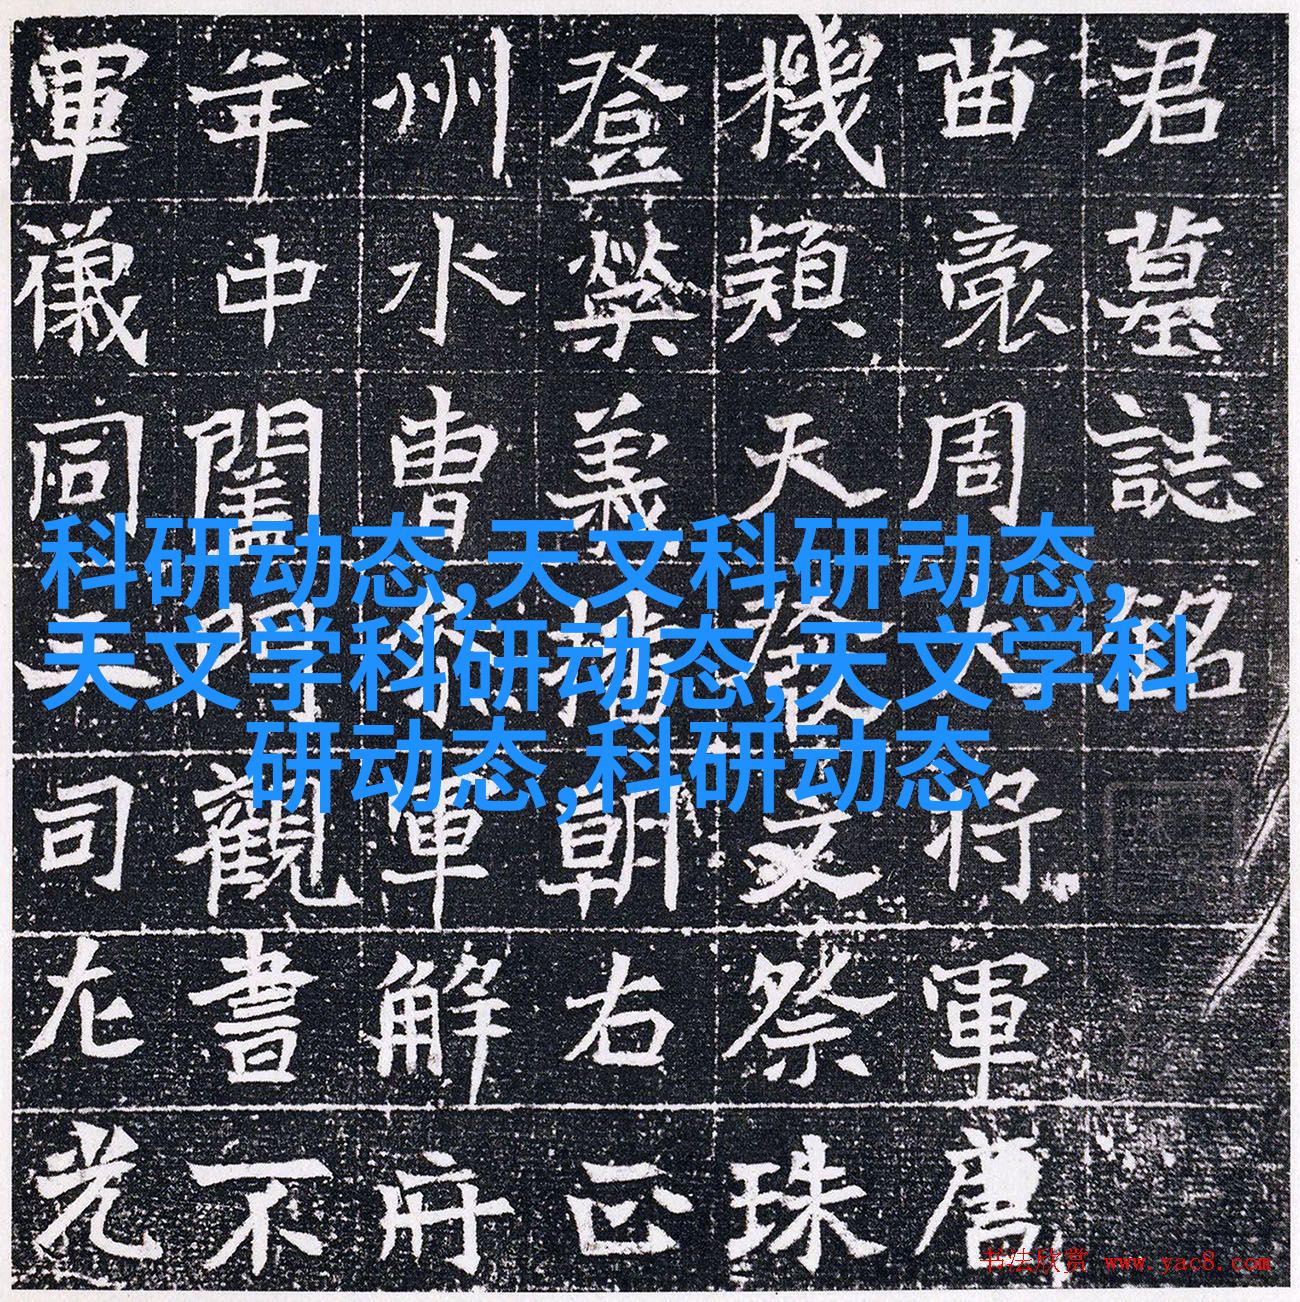 君墓誌銘
苗裔周大将軍
機穎天文祭珠
登榮義播朝右正
州水曹軍解府
年中闔門觀書不
軍儀同三司左光
科研动态,天文科研动态,
天文学科研动态,天文学科
研动态,科研动态
书法欣赏 www.yac8.com